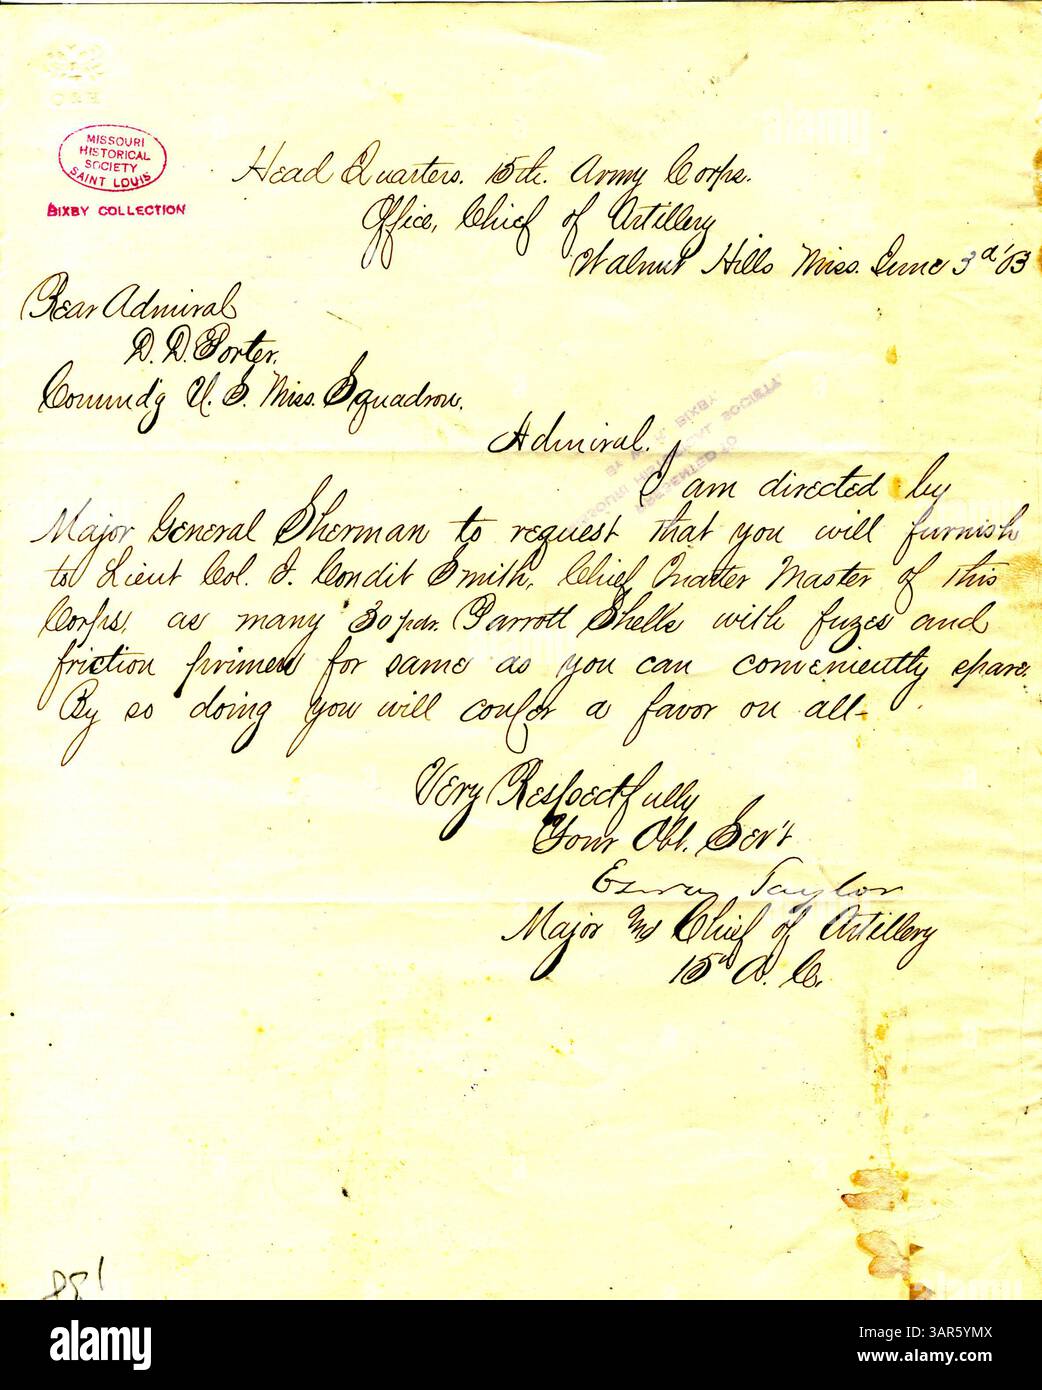 MISSOURI
HISTORICAL
SOCIETY
SAINT LOUIS
BIXBY COLLECTION
Head Quarters. 15th. Army Corps.
Office, Chief of Artillery
Walnut Hills Miss. June 3d '63
Rear Admiral
D. D. Porter.
Commd'g U. S. Miss. Squadron.
Admiral.
I am directed by
Major General Sherman to request that you will furnish
to Lieut Col. J. Condit Smith, Chief Quarter Master of this
Corps, as many 30 pdr. Parrott Shells with fuzes and
friction primers for same as you can conveniently spare.
By so doing you will confer a favor on all-
Very Respectfully
Your Obt. Serv't
Ezra Taylor
Major and Chief of Artillery
15th A. C.
PRESENTED TO
MISSOURI HISTORICAL SOCIETY
BY W. K. BIXBY
881
alamy
Image ID: 3AR5YMX
www.alamy.com